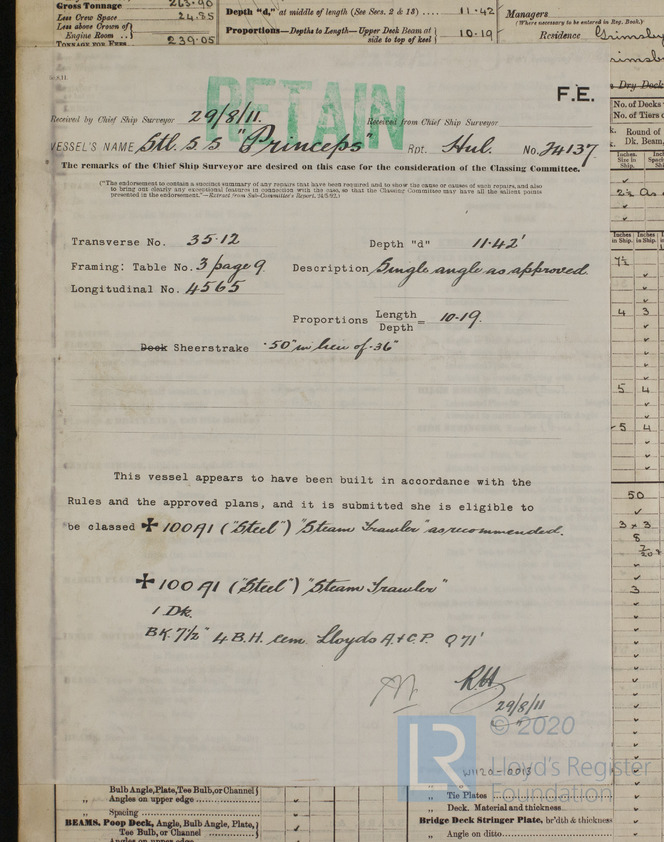 263.90
Gross Tonnage
Less Crew Space 24.85
Less above Crown of Engine Room ..
239.05
TONNAGE FOR FEES
Depth "d," at middle of length (See Secs. 2 & 13) .... 11.42
Proportions—Depths to Length—Upper Deck Beam at side to top of keel 10.19
Managers
(Where necessary to be entered in Reg. Book.)
Residence Grimsby
Grimsby
Dry Dock
No. of Decks
No. of Tiers
Round of
Dk. Beam,
RETAIN
F.E.
Received by Chief Ship Surveyor 29/8/11. Received from Chief Ship Surveyor
VESSEL'S NAME Stl. S S "Princeps" Rpt. Hul. No. 24137
The remarks of the Chief Ship Surveyor are desired on this case for the consideration of the Classing Committee.
("The endorsement to contain a succinct summary of any repairs that have been required and to show the cause or causes of such repairs, and also
to bring out clearly any exceptional features in connection with the case, so that the Classing Committee may have all the salient points
presented in the endorsement."—Extract from Sub-Committee's Report, 24/5/92.)
Transverse No. 35.12 Depth "d" 11.42'
Framing: Table No. 3 page 9. Description Single angle as approved.
Longitudinal No. 4565
Proportions Length
Depth = 10.19.
Deck Sheerstrake .50" in lieu of .36"
This vessel appears to have been built in accordance with the
Rules and the approved plans, and it is submitted she is eligible to
be classed ✠ 100A1 ("Steel") "Steam Trawler" as recommended.
✠ 100A1 ("Steel") "Steam Trawler"
1 Dk.
BK. 7½" 4 B.H. cem. Lloyds A.& C.P.
29/8/11
W1120-0013
© 2020
LR
Lloyd's Register
Foundation
Bulb Angle, Plate, Tee Bulb, or Channel
„ Angles on upper edge
„ Spacing
BEAMS, Poop Deck, Angle, Bulb Angle, Plate,
Tee Bulb, or Channel
Angles on upper edge
„ Tie Plates
„ Deck. Material and thickness
Bridge Deck Stringer Plate, br'dth & thickness
„ Angle on ditto